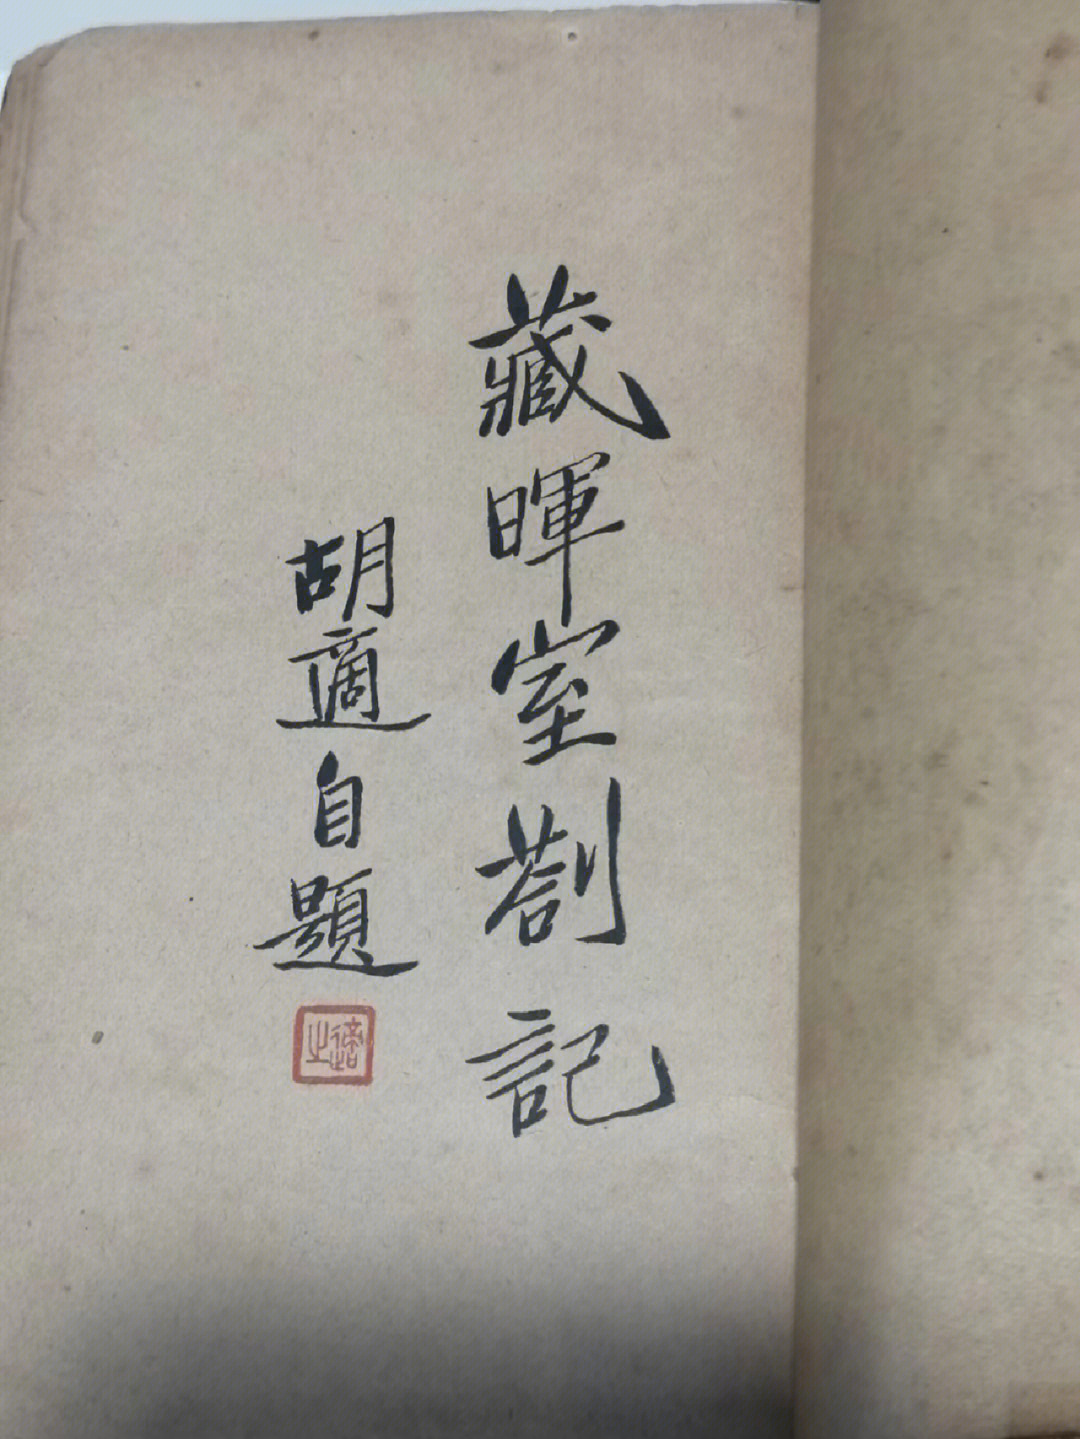 藏暉室劄記
胡適自題
適之